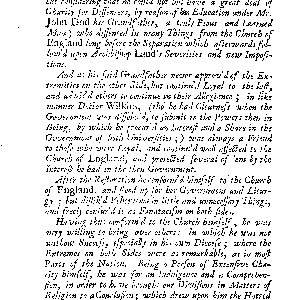 the considering that he could not but have a great deal of
Charity for Dissenters, by reason of his Education under Mr.
John Dod his Grandfather, a truly Pious and Learned
Man; who dissented in many Things from the Church of
England long before the Separation which afterwards fol-
low'd upon Archbishop Laud's Severities and new Imposi-
tions.
And as his said Grandfather never approv'd of the Ex-
tremities on the other side, but continu'd Loyal to the last,
and advis'd others to continue in their Allegiance; in like
manner Doctor Wilkins, tho' he had Clearness when the
Government was dissolv'd, to submit to the Powers then in
Being, by which he procur'd an Interest and a Share in the
Government of both Universities; was always a Friend
to those who were Loyal, and continu'd well affected to the
Church of England, and protected several of 'em by the
Interest he had in the then Government.
After the Restoration he conform'd himself to the Church
of England, and stood up for her Government and Litur-
gy; but dislik'd Vehemence in little and unnecessary Things,
and freely censur'd it as Fanaticism on both sides.
Having thus conform'd to the Church himself, he was
very willing to bring over others: in which he was not
without Success, especially in his own Diocese; where the
Extremes on both Sides were as remarkable, as in most
Parts of the Nation. Being a Person of Extensive Cha-
rity himself, he was for an Indulgence and a Comprehen-
sion, in order to have brought our Divisions in Matters of
Religion to a Conclusion; which drew upon him the Hatred